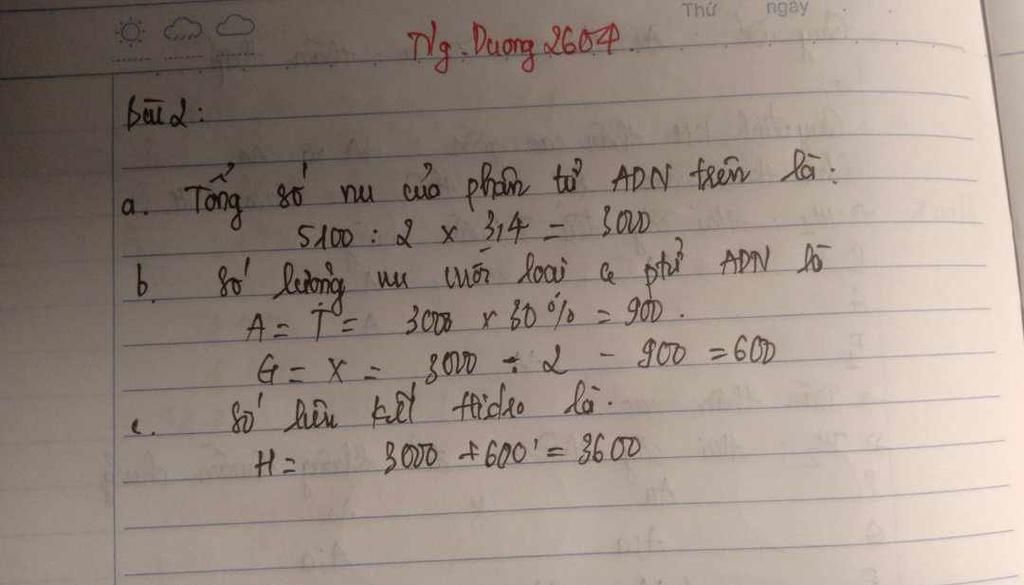 Thứ ngày
Ng.Duong2604
Bài 2:
a. Tổng số nu của phân tử ADN trên là:
5100 : 2 x 3,4 = 3000
b. Số lượng nu mỗi loại ptử ADN là
A = T = 3000 x 30% = 900.
G = X = 3000 ÷ 2 - 900 = 600
c. Số liên kết Hidro là.
H = 3000 + 600 = 3600